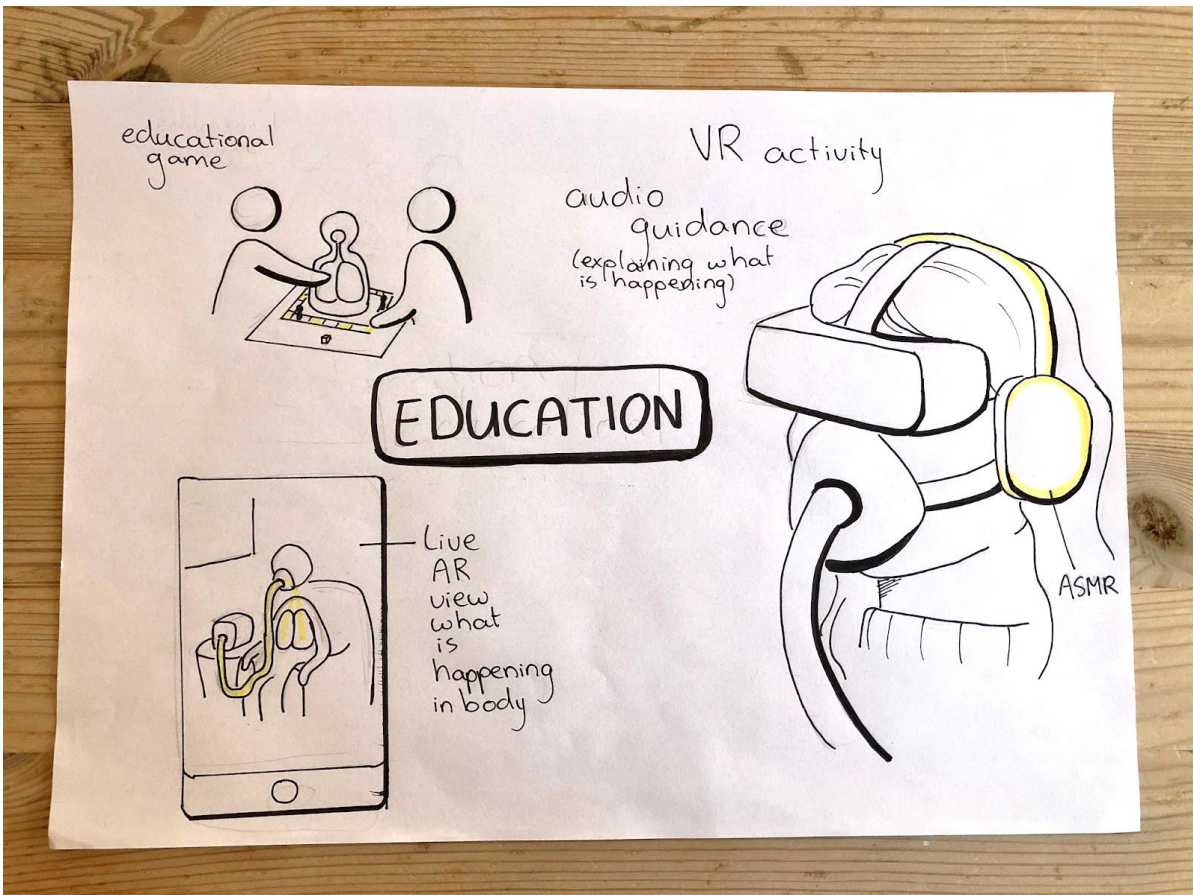 educational
game
VR activity
audio
guidance
(explaining what
is happening)
EDUCATION
Live
AR
view
what
is
happening
in body
ASMR